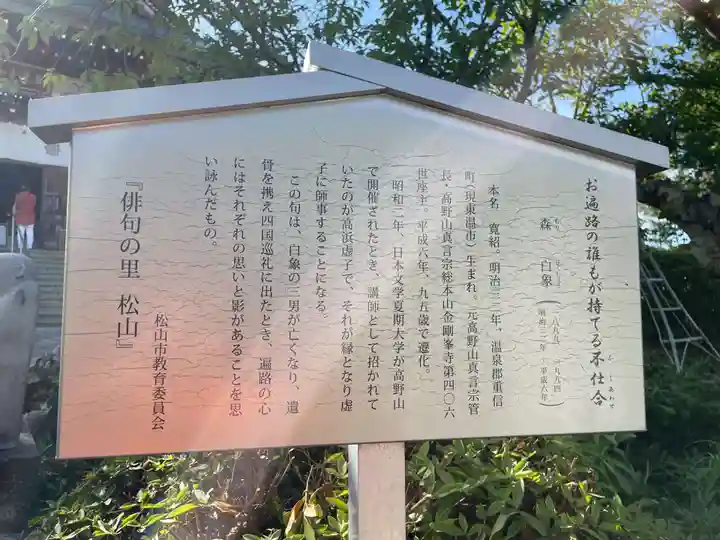 お遍路の誰もが持てる不仕合
ふしあわせ
森 白象
もり
明治三二年、温泉郡重信
町(現東温市)生まれ。元高野山真言宗管
長・高野山真言宗総本山金剛峯寺第四〇六
世座主。平成六年、九五歳で遷化。
昭和二年、日本文学夏期大学が高野山
で開催されたとき、講師として招かれて
いたのが高浜虚子で、それが縁となり虚
子に師事することになる。
この句は、白象の三男が亡くなり、遺
骨を携え四国巡礼に出たとき、遍路の心
にはそれぞれの思いと影があることを思
い詠んだもの。
『俳句の里 松山』
松山市教育委員会